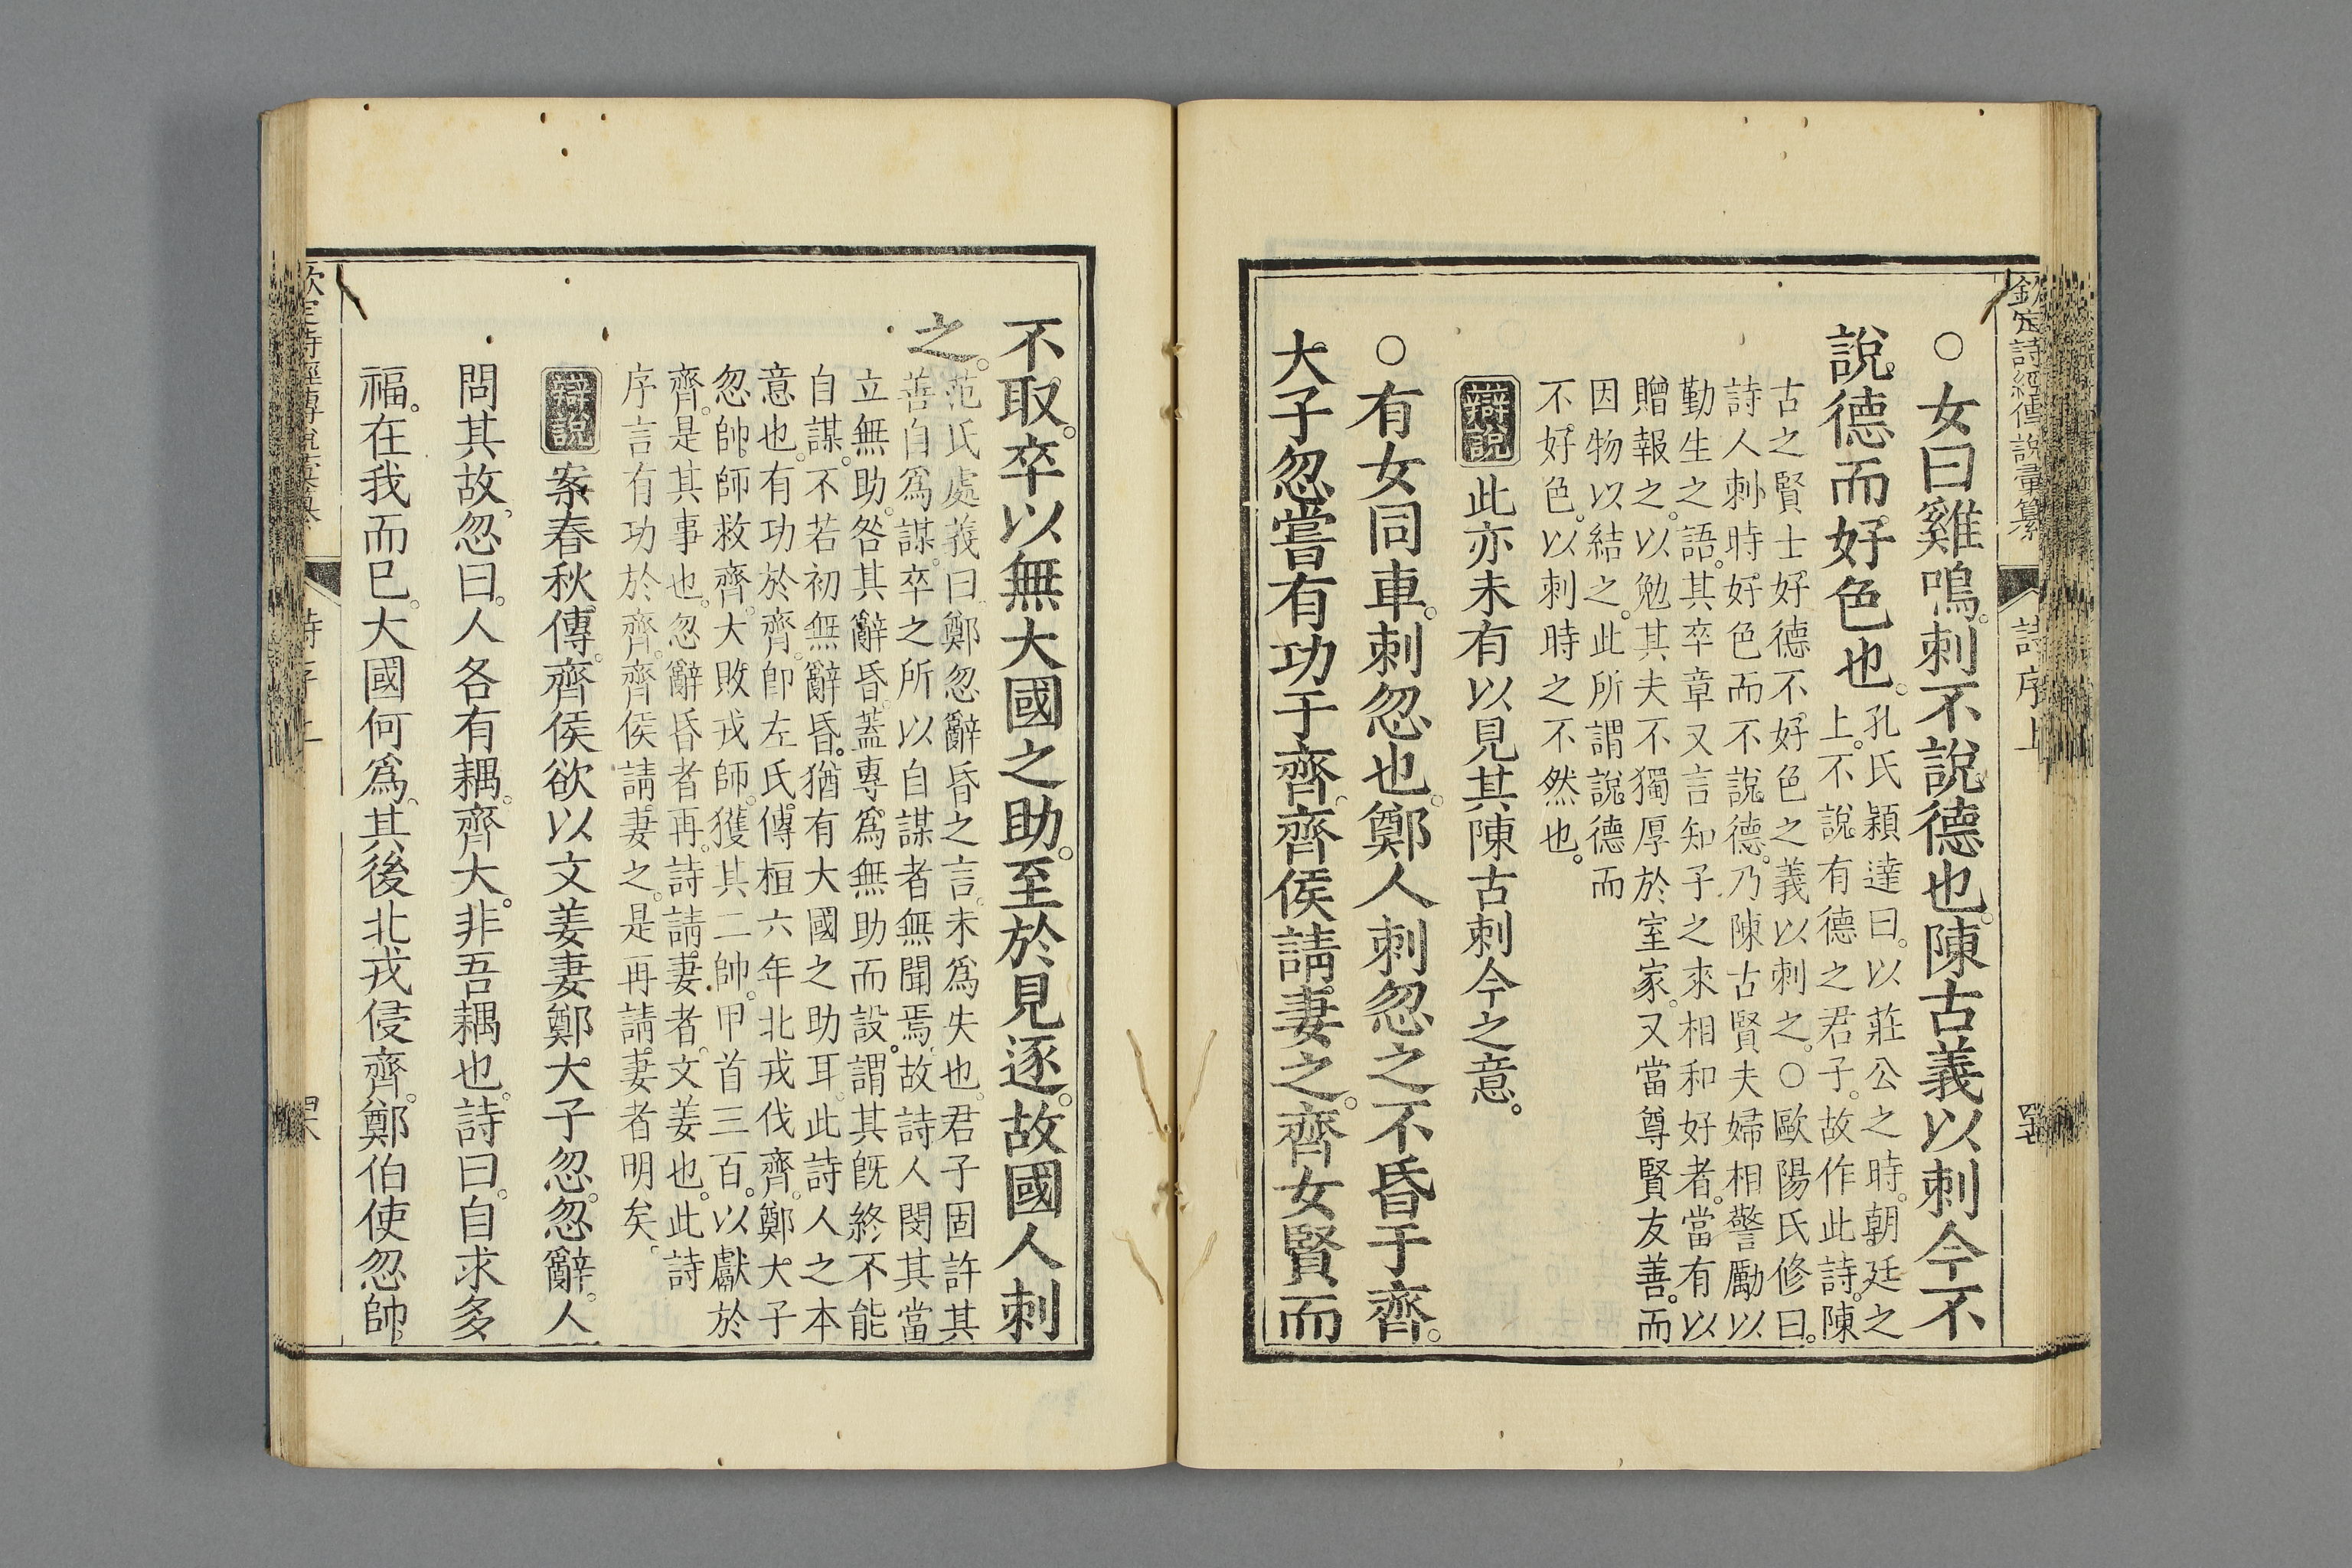 欽定詩經傳說彙纂
詩序上
○女曰雞鳴。刺不說德也。陳古義以刺今不
說德而好色也。
孔氏穎達曰。以莊公之時。朝廷之
上。不說有德之君子。故作此詩。陳
古之賢士好德不好色之義以刺之。○歐陽氏修曰。
詩人刺時好色而不說德。乃陳古賢夫婦相警勵以
勤生之語。其卒章又言知子之來相和好者。當有以
贈報之。以勉其夫不獨厚於室家。又當尊賢友善。而
因物以結之。此所謂說德而
不好色。以刺時之不然也。
辯說 此亦未有以見其陳古刺今之意。
○有女同車。刺忽也。鄭人刺忽之不昏于齊。
大子忽嘗有功于齊。齊侯請妻之。齊女賢而
不取。卒以無大國之助。至於見逐。故國人刺
之。
范氏處義曰。鄭忽辭昏之言。未爲失也。君子固許其
善自爲謀。卒之所以自謀者無聞焉。故詩人閔其當
立無助。咎其辭昏。蓋專爲無助而設。謂其旣終不能
自謀。不若初無辭昏。猶有大國之助耳。此詩人之本
意也。有功於齊。卽左氏傳桓六年北戎伐齊。鄭大子
忽帥師救齊。大敗戎師。獲其二帥。甲首三百。以獻於
齊。是其事也。忽辭昏者再。詩請妻者。文姜也。此詩
序言有功於齊。齊侯請妻之。是再請妻者明矣。
辯說 案春秋傳。齊侯欲以文姜妻鄭大子忽。忽辭。人
問其故。忽曰。人各有耦。齊大。非吾耦也。詩曰。自求多
福。在我而已。大國何爲。其後北戎侵齊。鄭伯使忽帥